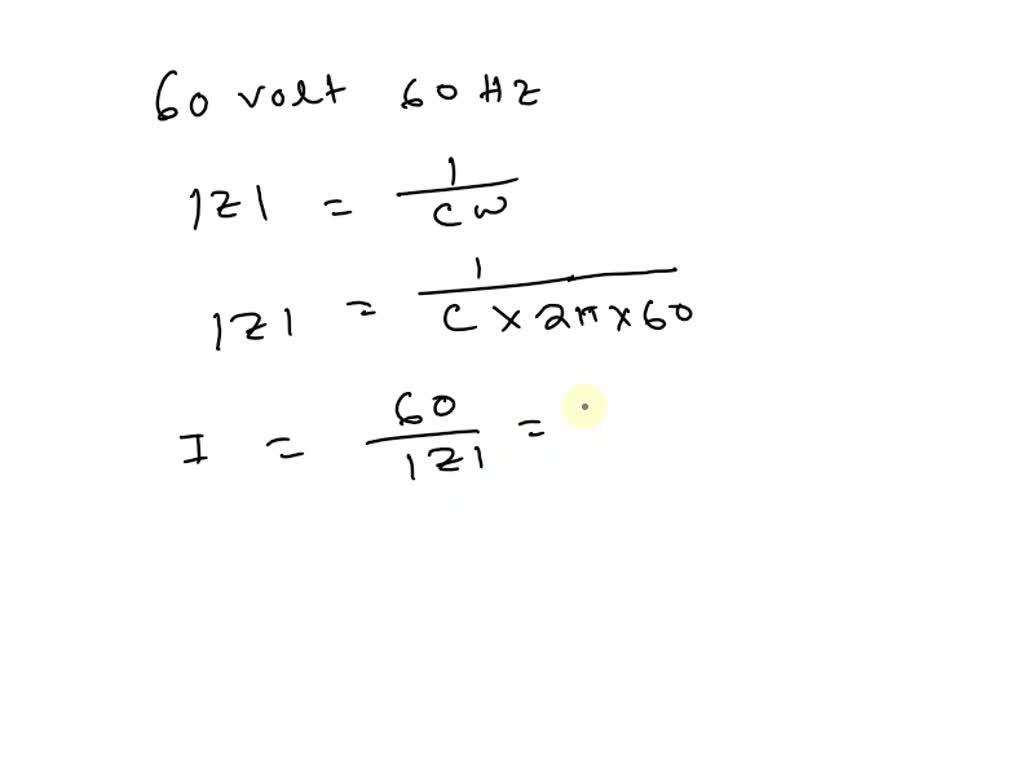 60 volt 60 Hz
|Z| = 1/Cω
|Z| = 1/C × 2π × 60
I = 60/|Z| =